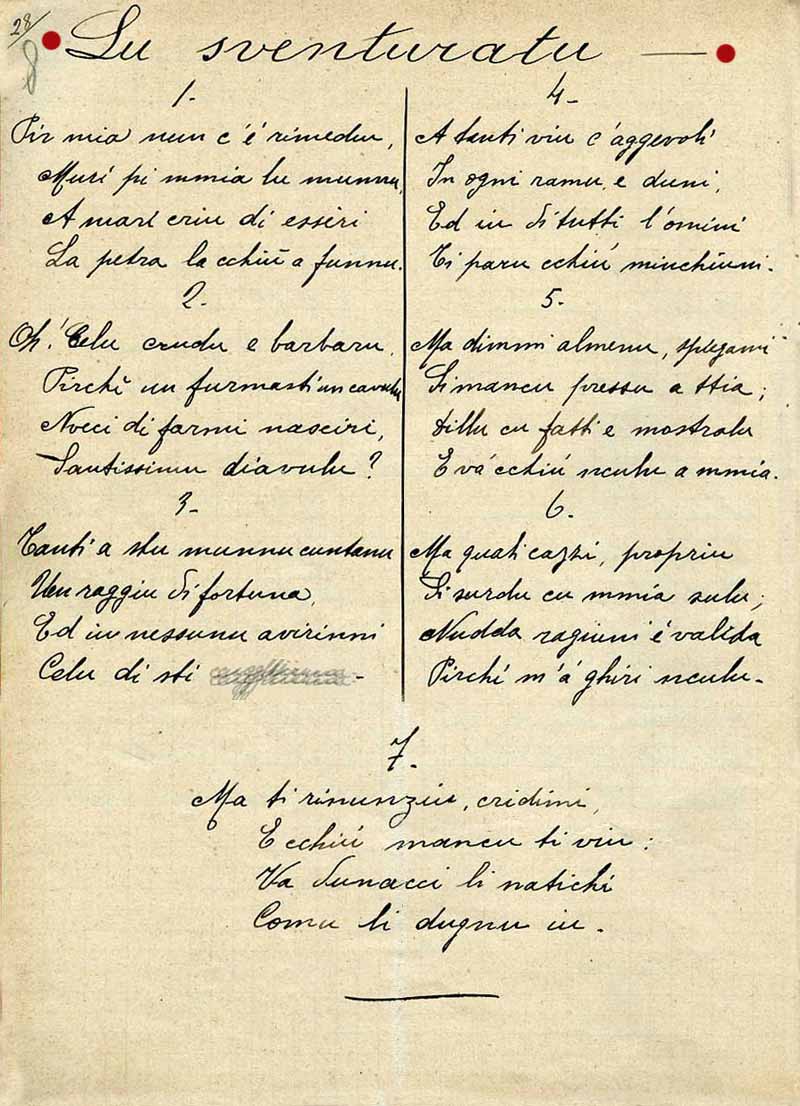 28/
8
Lu sventuratu —
1-
Pir mia nun c'é rimediu,
Murí pi mmia lu munnu,
A mari criu di essiri
La petra la cchiù a funnu.
2-
Oh! Celu crudu e barbaru,
Pirchì un furmasti un cavulu
Nveci di farmi nasciri,
Santissimu diavulu?
3-
Tanti a stu munnu cuntanu
Un raggiu di fortuna,
Ed iu nessunu avirinni
Celu di sti
4-
A tanti viu c'aggevoli
In ogni ramu, e duni,
Ed iu di tutti l'omini
Ti paru cchiú minchiuni.
5-
Ma dimmi almenu, spiegami
Si mancu pressu a ttia;
Dillu cu fatti e mostralu
E vá cchiú nculu a mmia.
6-
Ma quali cazzi, propriu
Si surdu cu mmia sulu;
Nudda ragiuni é valida
Pirchí m'á ghiri nculu.
7-
Ma ti rinunziu, cridimi,
E cchiú mancu ti viu:
Va dunacci li natichi
Comu li dugnu iu.